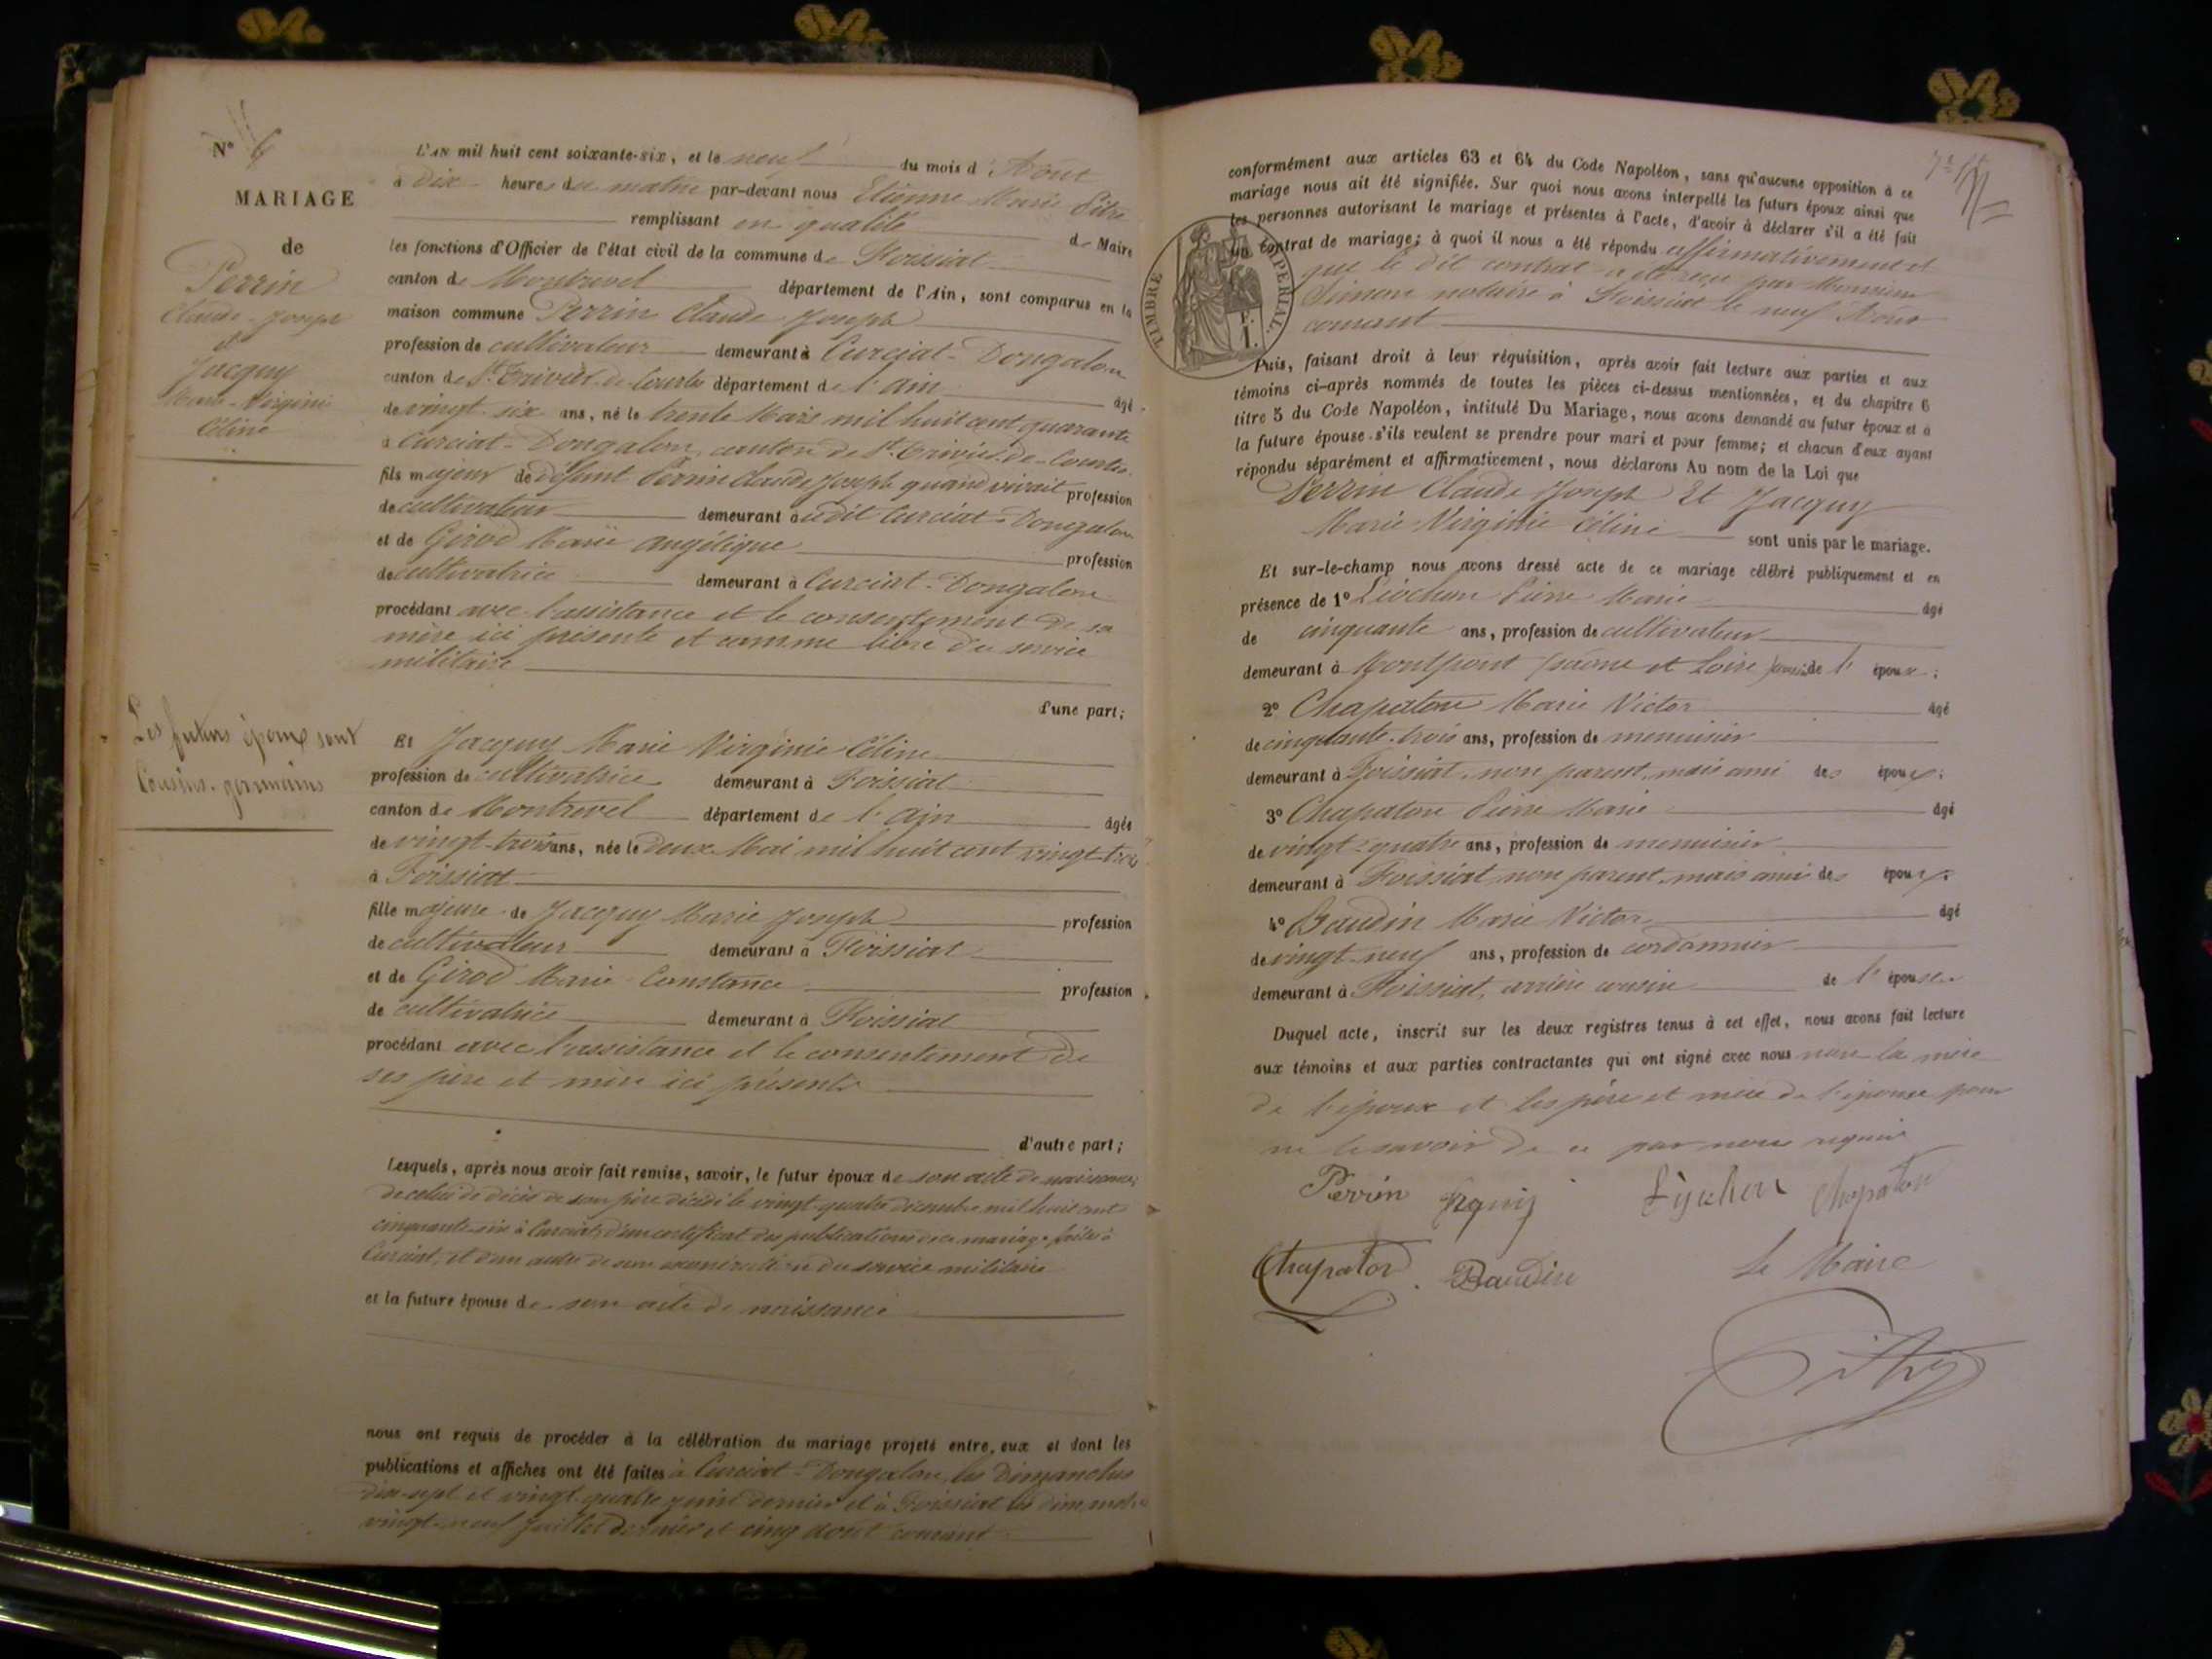 N° 6
MARIAGE
de
Perrin
Claude-Joseph
et
Jacquy
Marie-Virginie
Céline
Les futurs époux sont
Cousins-germains
L'AN mil huit cent soixante-six, et le neuf du mois d'Aout
à Dix heures du matin par-devant nous Etienne Marie
remplissant en qualité de Maire
les fonctions d'Officier de l'état civil de la commune de Foissiat
canton de Montrevel département de l'Ain, sont comparus en la
maison commune Perrin Claude Joseph
profession de cultivateur demeurant à Curciat-Dongalon
canton de St Trivier-de-Courtes département de l'ain âgé
de vingt-six ans, né le trente Mars mil huit cent quarante
à Curciat-Dongalon, canton de St Trivier-de-Courtes
fils majeur de défunt Perrin Claude Joseph quand vivait profession
de cultivateur demeurant au dit Curciat-Dongalon
et de Girod Marie Angélique profession
de cultivatrice demeurant à Curciat-Dongalon
procédant avec l'assistance et le consentement de sa
mère ici présente et comme libéré du service
militaire
d'une part;
Et Jacquy Marie Virginie Céline
profession de cultivatrice demeurant à Foissiat
canton de Montrevel département de l'Ain âgée
de vingt-trois ans, née le Deux Mai mil huit cent vingt-trois
à Foissiat
fille majeure de Jacquy Marie Joseph profession
de cultivateur demeurant à Foissiat
et de Girod Marie Constance profession
de cultivatrice demeurant à Foissiat
procédant avec l'assistance et le consentement de
ses père et mère ici présents
d'autre part;
Lesquels, après nous avoir fait remise, savoir, le futur époux de son acte de naissance,
de celui de décès de son père décédé le vingt-quatre décembre mil huit cent
cinquante-six à Curciat, d'un certificat des publications de ce mariage faites à
Curciat, et d'un autre de son exonération du service militaire
et la future épouse de son acte de naissance
nous ont requis de procéder à la célébration du mariage projeté entre eux et dont les
publications et affiches ont été faites à Curciat-Dongalon, les Dimanches
Dix-sept et vingt-quatre juin dernier et à Foissiat les dimanches
vingt-neuf Juillet dernier et cinq Aout courant
conformément aux articles 63 et 64 du Code Napoléon, sans qu'aucune opposition à ce
mariage nous ait été signifiée. Sur quoi nous avons interpellé les futurs époux ainsi que
les personnes autorisant le mariage et présentes à l'acte, d'avoir à déclarer s'il a été fait
un contrat de mariage; à quoi il nous a été répondu affirmativement et
que le dit contrat a été reçu par Monsieur
Simon notaire à Foissiat le neuf Aout
courant
TIMBRE IMPERIAL.
Puis, faisant droit à leur réquisition, après avoir fait lecture aux parties et aux
témoins ci-après nommés de toutes les pièces ci-dessus mentionnées, et du chapitre 6
titre 5 du Code Napoléon, intitulé Du Mariage, nous avons demandé au futur époux et à
la future épouse s'ils veulent se prendre pour mari et pour femme; et chacun d'eux ayant
répondu séparément et affirmativement, nous déclarons Au nom de la Loi que
Perrin Claude Joseph Et Jacquy
Marie Virginie Céline sont unis par le mariage.
Et sur-le-champ nous avons dressé acte de ce mariage célébré publiquement et en
présence de 1° Liochon Pierre Marie âgé
de cinquante ans, profession de cultivateur
demeurant à Montpont (saône et Loire) de l'époux;
2° Chapaton Marie Victor âgé
de cinquante-trois ans, profession de menuisier
demeurant à Foissiat, non parent, mais ami des époux;
3° Chapaton Pierre Marie âgé
de vingt-quatre ans, profession de menuisier
demeurant à Foissiat, non parent, mais ami des époux;
4° Baudin Marie Victor âgé
de vingt-neuf ans, profession de cordonnier
demeurant à Foissiat, arrière cousin de l'épouse.
Duquel acte, inscrit sur les deux registres tenus à cet effet, nous avons fait lecture
aux témoins et aux parties contractantes qui ont signé avec nous non la mère
de l'époux et les père et mère de l'épouse pour
ne le savoir de ce par nous requis
Perrin Liochon Chapaton
Chapaton Baudin Le Maire